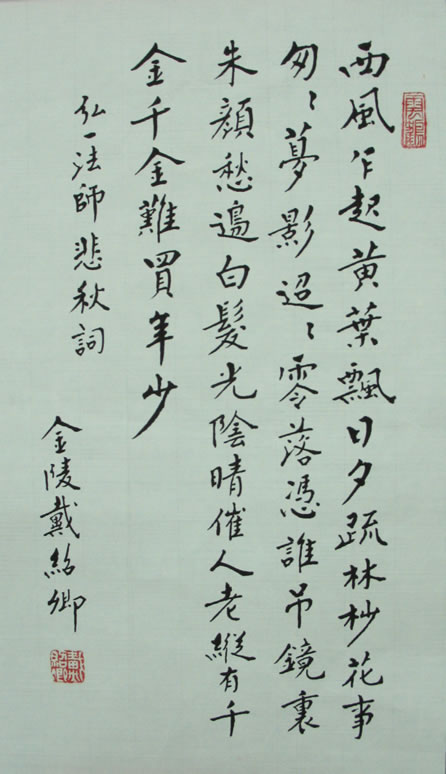 西風乍起黃葉飄日夕疏林杪花事
匆〻夢影迢〻零落憑誰吊鏡裏
朱顏愁邊白髮光陰晴催人老縱有千
金千金難買年少
弘一法師悲秋詞
金陵戴紹卿